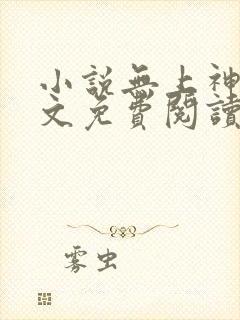 小說無上神
文免費閱讀
雾虫